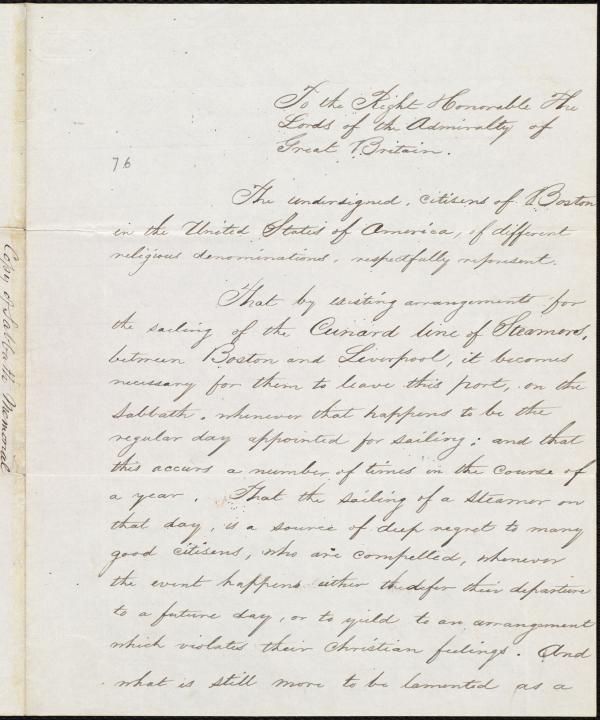 To the Right Honorable The
Lords of the Admiralty of
Great Britain.
76
The undersigned, citisens of Boston
in the United States of America, of different
religious denominations, respectfully represent.
That by existing arrangements for
the sailing of the Cunard line of Steamers,
between Boston and Leverpool, it becomes
necessary for them to leave this port, on the
Sabbath, whenever that happens to be the
regular day appointed for sailing; and that
this accurs a number of times in the course of
a year. That the sailing of a Steamer on
that day, is a source of deep regret to many
good citisens, who are compelled, whenever
the event happens either to defer their departure
to a future day, or to yield to an arrangement
which violates their Christian feelings. And
what is still more to be lamented as a
Copy of Sabbath Memorial